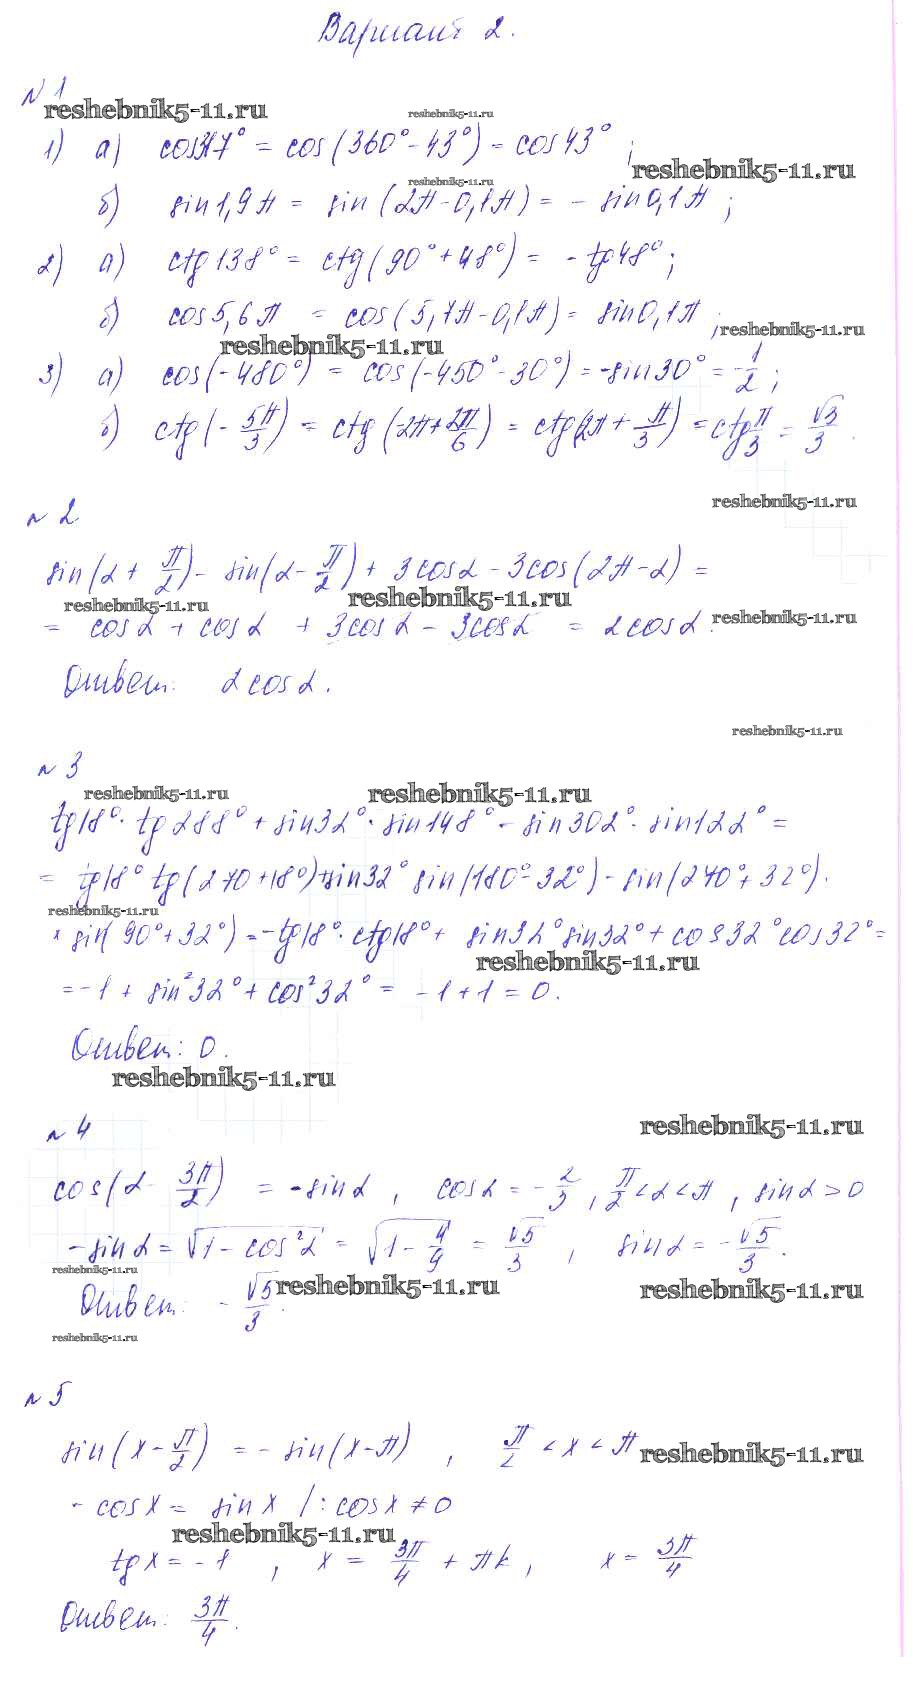 Вариант 2.
№ 1
reshebnik5-11.ru
reshebnik5-11.ru
1) а) cos317° = cos(360° - 43°) = cos43° ;
reshebnik5-11.ru
reshebnik5-11.ru
б) sin1,9π = sin(2π - 0,1π) = - sin0,1π ;
2) а) ctg138° = ctg(90° + 48°) = - tg48° ;
б) cos5,6π = cos(5,7π - 0,1π) = sin0,1π ;
reshebnik5-11.ru
reshebnik5-11.ru
3) а) cos(-480°) = cos(-450° - 30°) = -sin30° = -1/2 ;
б) ctg(-5π/3) = ctg(-2π + 2π/6) = ctg(2π + π/3) = ctg π/3 = √3/3 .
reshebnik5-11.ru
№ 2
sin(α + π/2) - sin(α - π/2) + 3cosα - 3cos(2π - α) =
reshebnik5-11.ru
reshebnik5-11.ru
= cosα + cosα + 3cosα - 3cosα = 2cosα .
reshebnik5-11.ru
Ответ: 2cosα .
reshebnik5-11.ru
№ 3
reshebnik5-11.ru
reshebnik5-11.ru
tg18° · tg288° + sin32° · sin148° - sin302° · sin122° =
= tg18° tg(270 + 18°) + sin32° sin(180° - 32°) - sin(270° + 32°) ·
reshebnik5-11.ru
× sin(90° + 32°) = - tg18° · ctg18° + sin32° sin32° + cos32° cos32° =
reshebnik5-11.ru
= -1 + sin²32° + cos²32° = -1 + 1 = 0 .
Ответ: 0 .
reshebnik5-11.ru
№ 4
reshebnik5-11.ru
cos(α - 3π/2) = - sinα , cosα = - 2/3 , π/2 < α < π , sinα > 0
- sinα = √(1 - cos²α) = √(1 - 4/9) = √5/3 , sinα = - √5/3 .
reshebnik5-11.ru
reshebnik5-11.ru
reshebnik5-11.ru
Ответ: - √5/3 .
reshebnik5-11.ru
№ 5
sin(x - π/2) = - sin(x - π) , π/2 < x < π
reshebnik5-11.ru
- cosx = sinx /: cosx ≠ 0
reshebnik5-11.ru
tgx = - 1 , x = 3π/4 + πk , x = 3π/4
Ответ: 3π/4 .